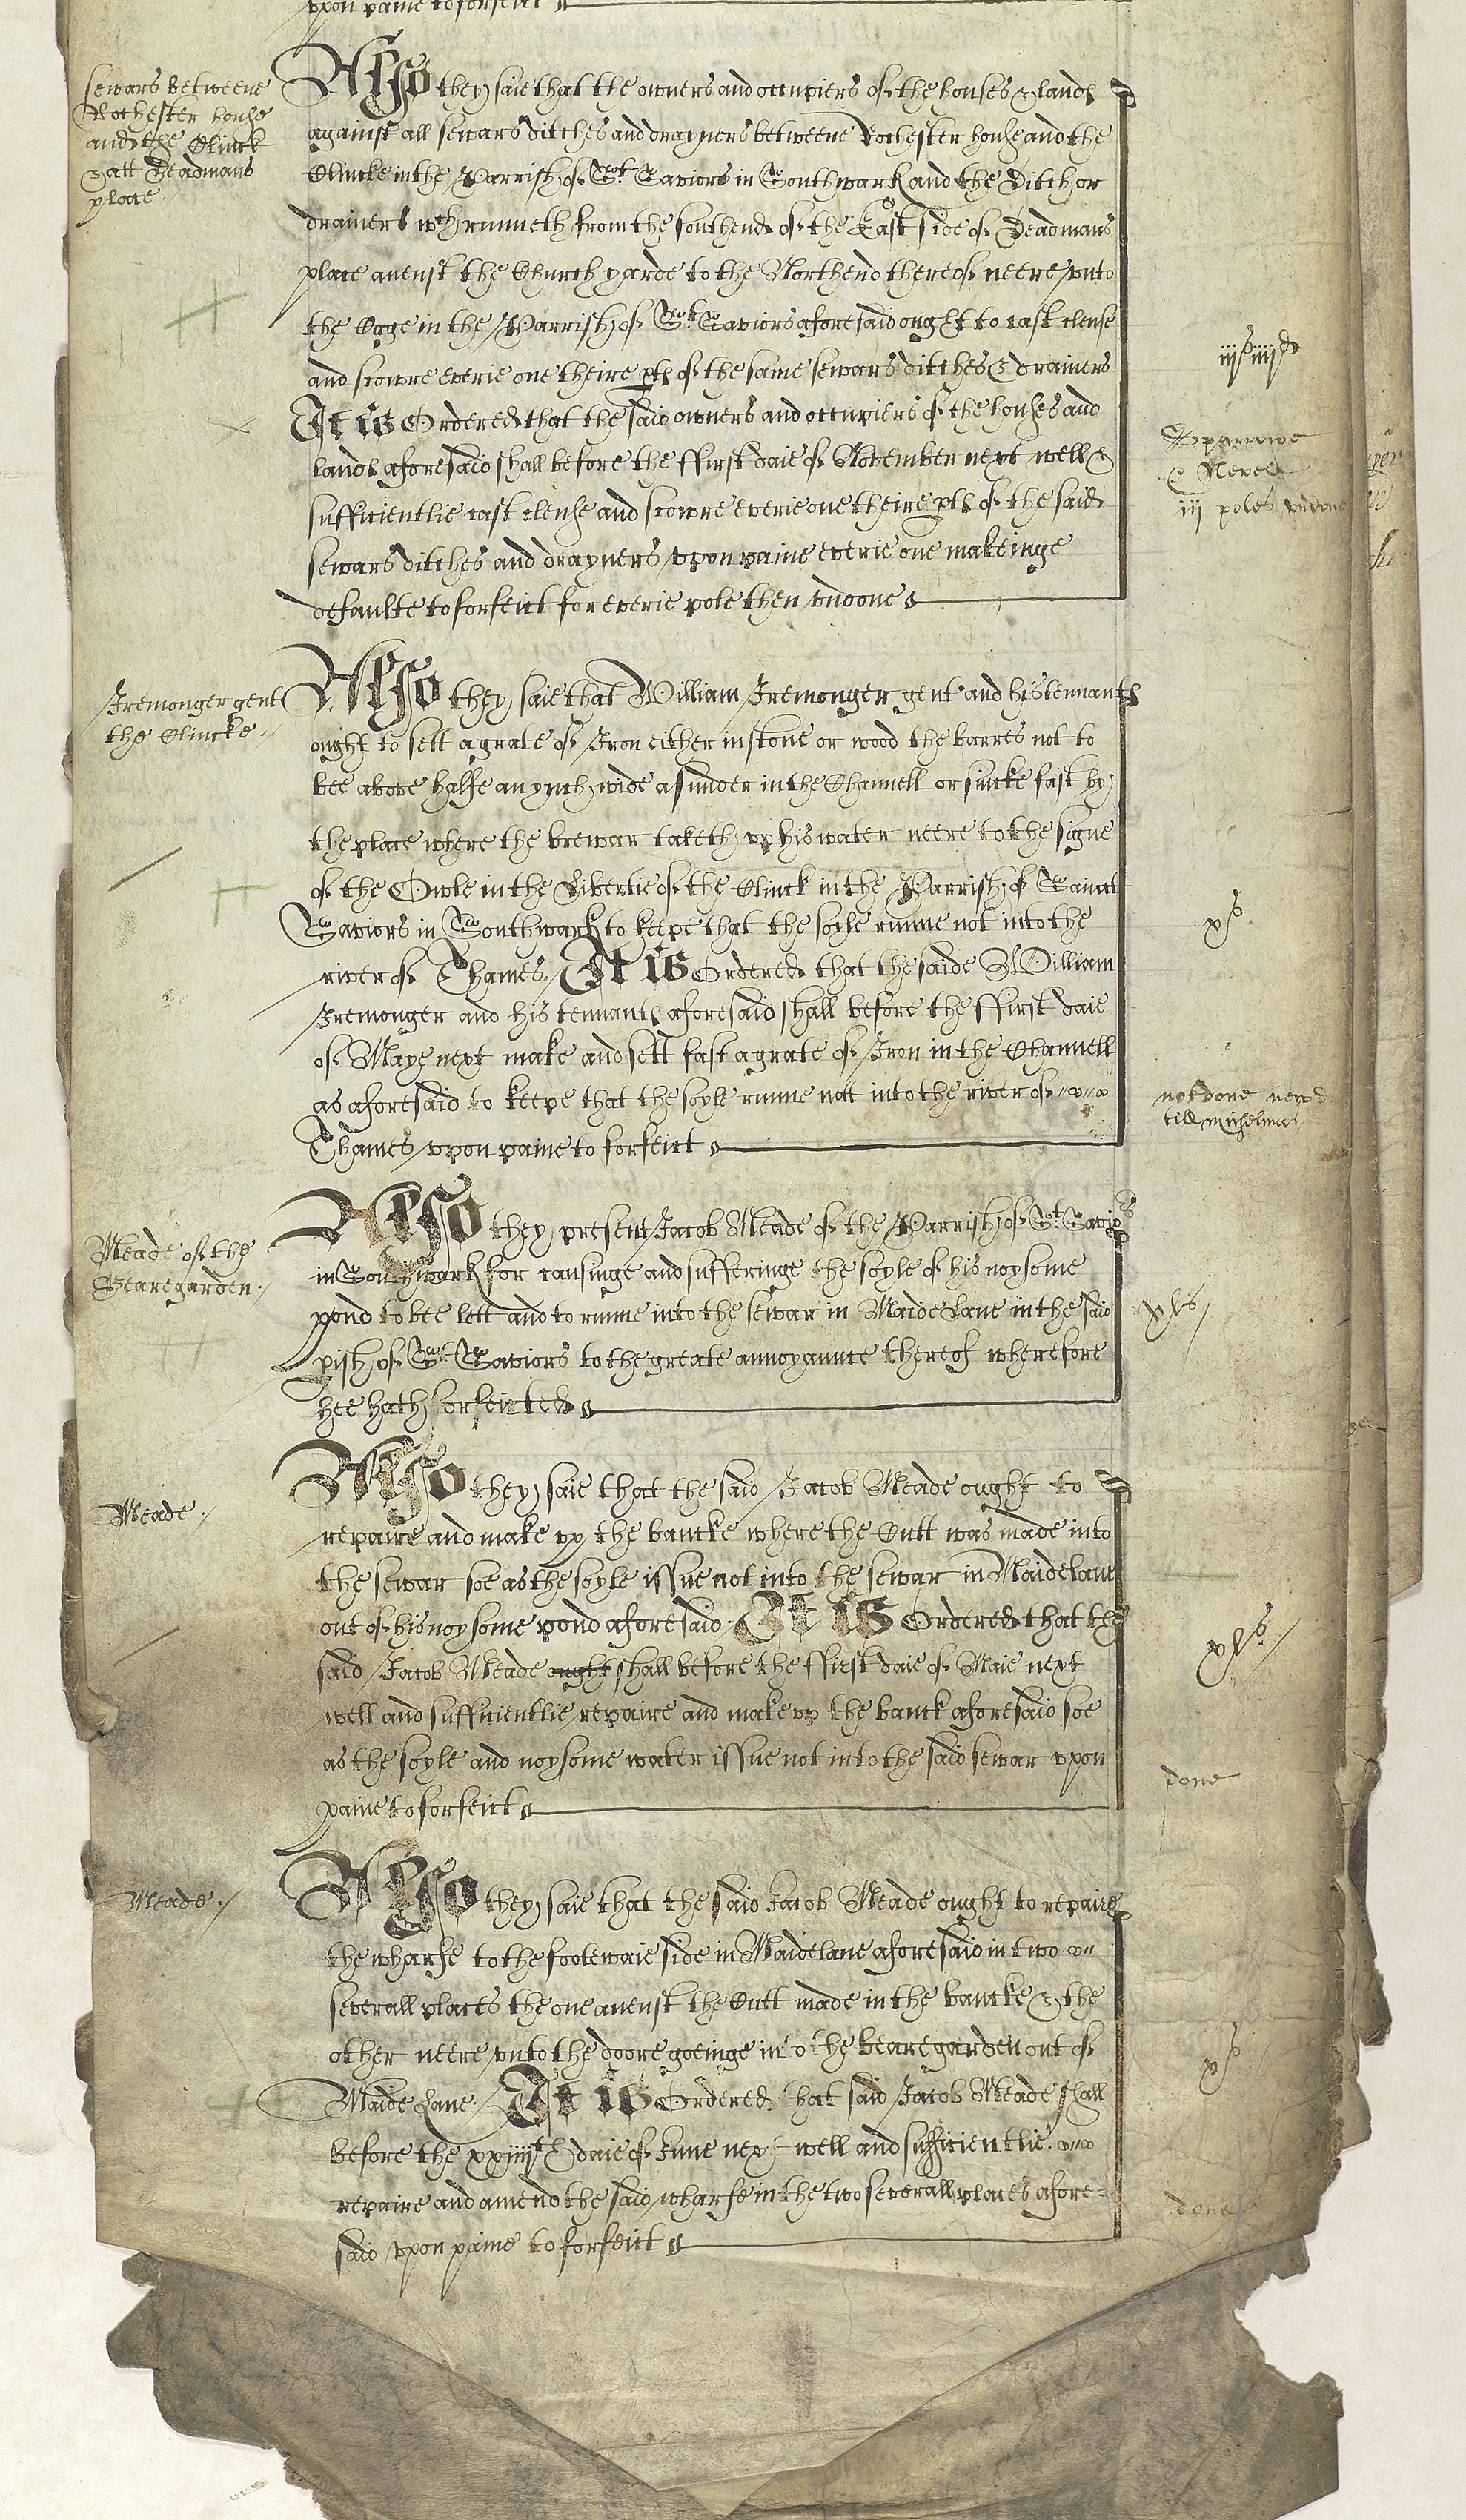 vpon paine to forfeict
sewars betweene
Rochester house
and the Clinck
& att Deadmans
place
Also they saie that the owners and occupiers of the houses & land℮
against all sewars ditches and drayners betweene Rochester house and the
Clincke in the Parrish of St Saviors in Southwark and the Ditch or
drainers wch runneth from the southend of the East side of Deadmans
place anenst the Church yarde to the Northend thereof neere vnto
the in the Parrish of St Saviors aforesaid ought to cast clense
and scowre everie one theire pt℮ of the same sewars ditches & drainers
iijs iiijd
It is Ordered that the said owners and occupiers of the houses and
land℮ aforesaid shall before the ffirst daie of November next well &
sufficientlie cast clense and scowre everie one theire pt℮ of the said
sewars ditches and drayners vpon paine everie one makeinge
defaulte to forfeict for everie pole then vndone
Sparrowe
& Nevele
iij poles vndone
Iremonger gent
the Clincke
Also they saie that William Iremonger gent and his tennant℮
ought to sett a grate of Iron either in stone or wood the barres not to
bee above halfe an ynch wide asunder in the Channell or sincke fast by
the place where the brewar taketh vp his water neere to the signe
of the Owle in the Libertie of the Clinck in the Parrish of Sainct
Saviors in Southwark to keepe that the soyle runne not into the
xs
river of Thames. It is Ordered that the saide William
Iremonger and his tennant℮ aforesaid shall before the ffirst daie
of Maye next make and sett fast a grate of Iron in the Channell
as aforesaid to keepe that the soyle runne not into the river of
Thames vpon paine to forfeict
not done
till michelmas
Meade of the
Bearegarden
Also they present Jacob Meade of the Parrish of St Saviors
in Southwark for causinge and sufferinge the soyle of his noysome
pond to bee lett and to runne into the sewar in Maide Lane in the said
pish of St Saviors to the greate annoyaunce thereof wherefore
hee hath forfeicted
xls
Meade
Also they saie that the said Jacob Meade ought to
repaire and make vp the bancke where the Cutt was made into
the sewar soe as the soyle issue not into the sewar in Maide lane
out of his noysome pond aforesaid. It is Ordered that the
said Jacob Meade ought shall before the ffirst daie of Maie next
well and sufficientlie repaire and make vp the banck aforesaid soe
as the soyle and noysome water issue not into the said sewar vpon
paine to forfeict
xls
done
Meade
Also they saie that the said Jacob Meade ought to repaire
the wharfe to the footewaie side in Maide lane aforesaid in two
severall places the one anenst the Cutt made in the bancke & the
other neere vnto the doore goeinge into the bearegarden out of
Maide Lane. It is Ordered that said Jacob Meade shall
before the xxiiijth daie of June next well and sufficientlie
repaire and amend the said wharfe in the two severall places afore=
said vpon paine to forfeict
xs
done